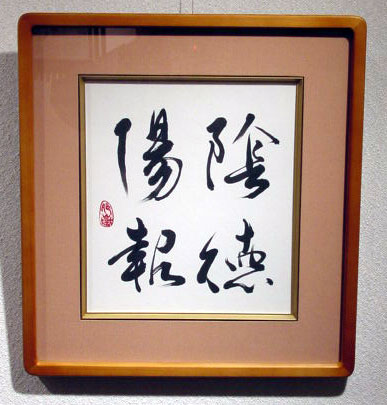 陰徳
陽報